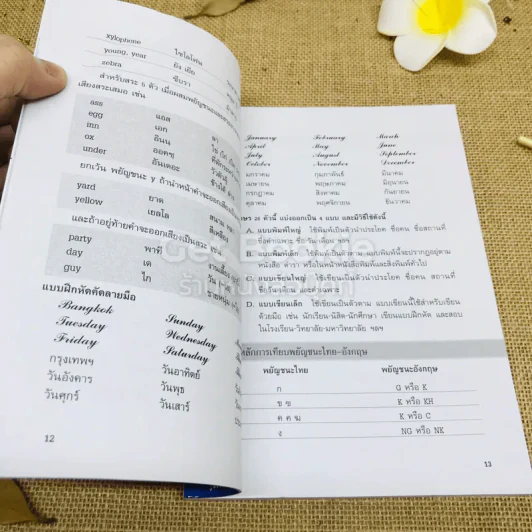 xylophone ไซโลโฟน
young, year ยัง เยีย
zebra ซีบรา
สำหรับสระ 5 ตัว เมื่อผสมพยัญชนะและ
เสียงสระเสมอ เช่น
ass แอส
egg เอก
inn อินน
ox ออคซฺ
under อันเดอะ
ยกเว้น พยัญชนะ y ถ้านำหน้าคำจะออกเสียง
yard ยาด
yellow เยลโล
และถ้าอยู่ท้ายคำจะออกเสียงเป็นสระ
party พาที
day เด
guy ไก
แบบฝึกหัดคัดลายมือ
Bangkok Sunday
Tuesday Wednesday
Friday Saturday
กรุงเทพฯ วันอาทิตย์
วันอังคาร วันพุธ
วันศุกร์ วันเสาร์
12
January February March
April May June
July August September
October November December
มกราคม กุมภาพันธ์ มีนาคม
เมษายน พฤษภาคม มิถุนายน
กรกฎาคม สิงหาคม กันยายน
ตุลาคม พฤศจิกายน ธันวาคม
26 ตัวนี้ แบ่งออกเป็น 4 แบบ และมีวิธีใช้ดังนี้
A. แบบพิมพ์ใหญ่ ใช้พิมพ์เป็นตัวนำประโยค ชื่อคน ชื่อสถานที่
ชื่อคำเฉพาะ ชื่อวัน/เดือน ฯลฯ
B. แบบพิมพ์เล็ก ใช้พิมพ์เป็นตัวตาม แบบพิมพ์นี้จะปรากฏอยู่ตาม
หนังสือ ตำรา หรือในหน้าหนังสือพิมพ์และสิ่งพิมพ์ทั่วไป
C. แบบเขียนใหญ่ ใช้เขียนเป็นตัวนำประโยค ชื่อคน สถานที่
ชื่อวัน/เดือน และคำเฉพาะ
D. แบบเขียนเล็ก ใช้เขียนเป็นตัวตาม แบบเขียนนี้ใช้สำหรับเขียน
ด้วยมือ เช่น นักเรียน-นิสิต-นักศึกษา เขียนแบบฝึกหัด และสอบ
ในโรงเรียน-วิทยาลัย-มหาวิทยาลัย ฯลฯ
หลักการเทียบพยัญชนะไทย-อังกฤษ
พยัญชนะไทย พยัญชนะอังกฤษ
ก G หรือ K
ข ฃ K หรือ KH
ค ฅ ฆ K หรือ C
ง NG หรือ NK
13